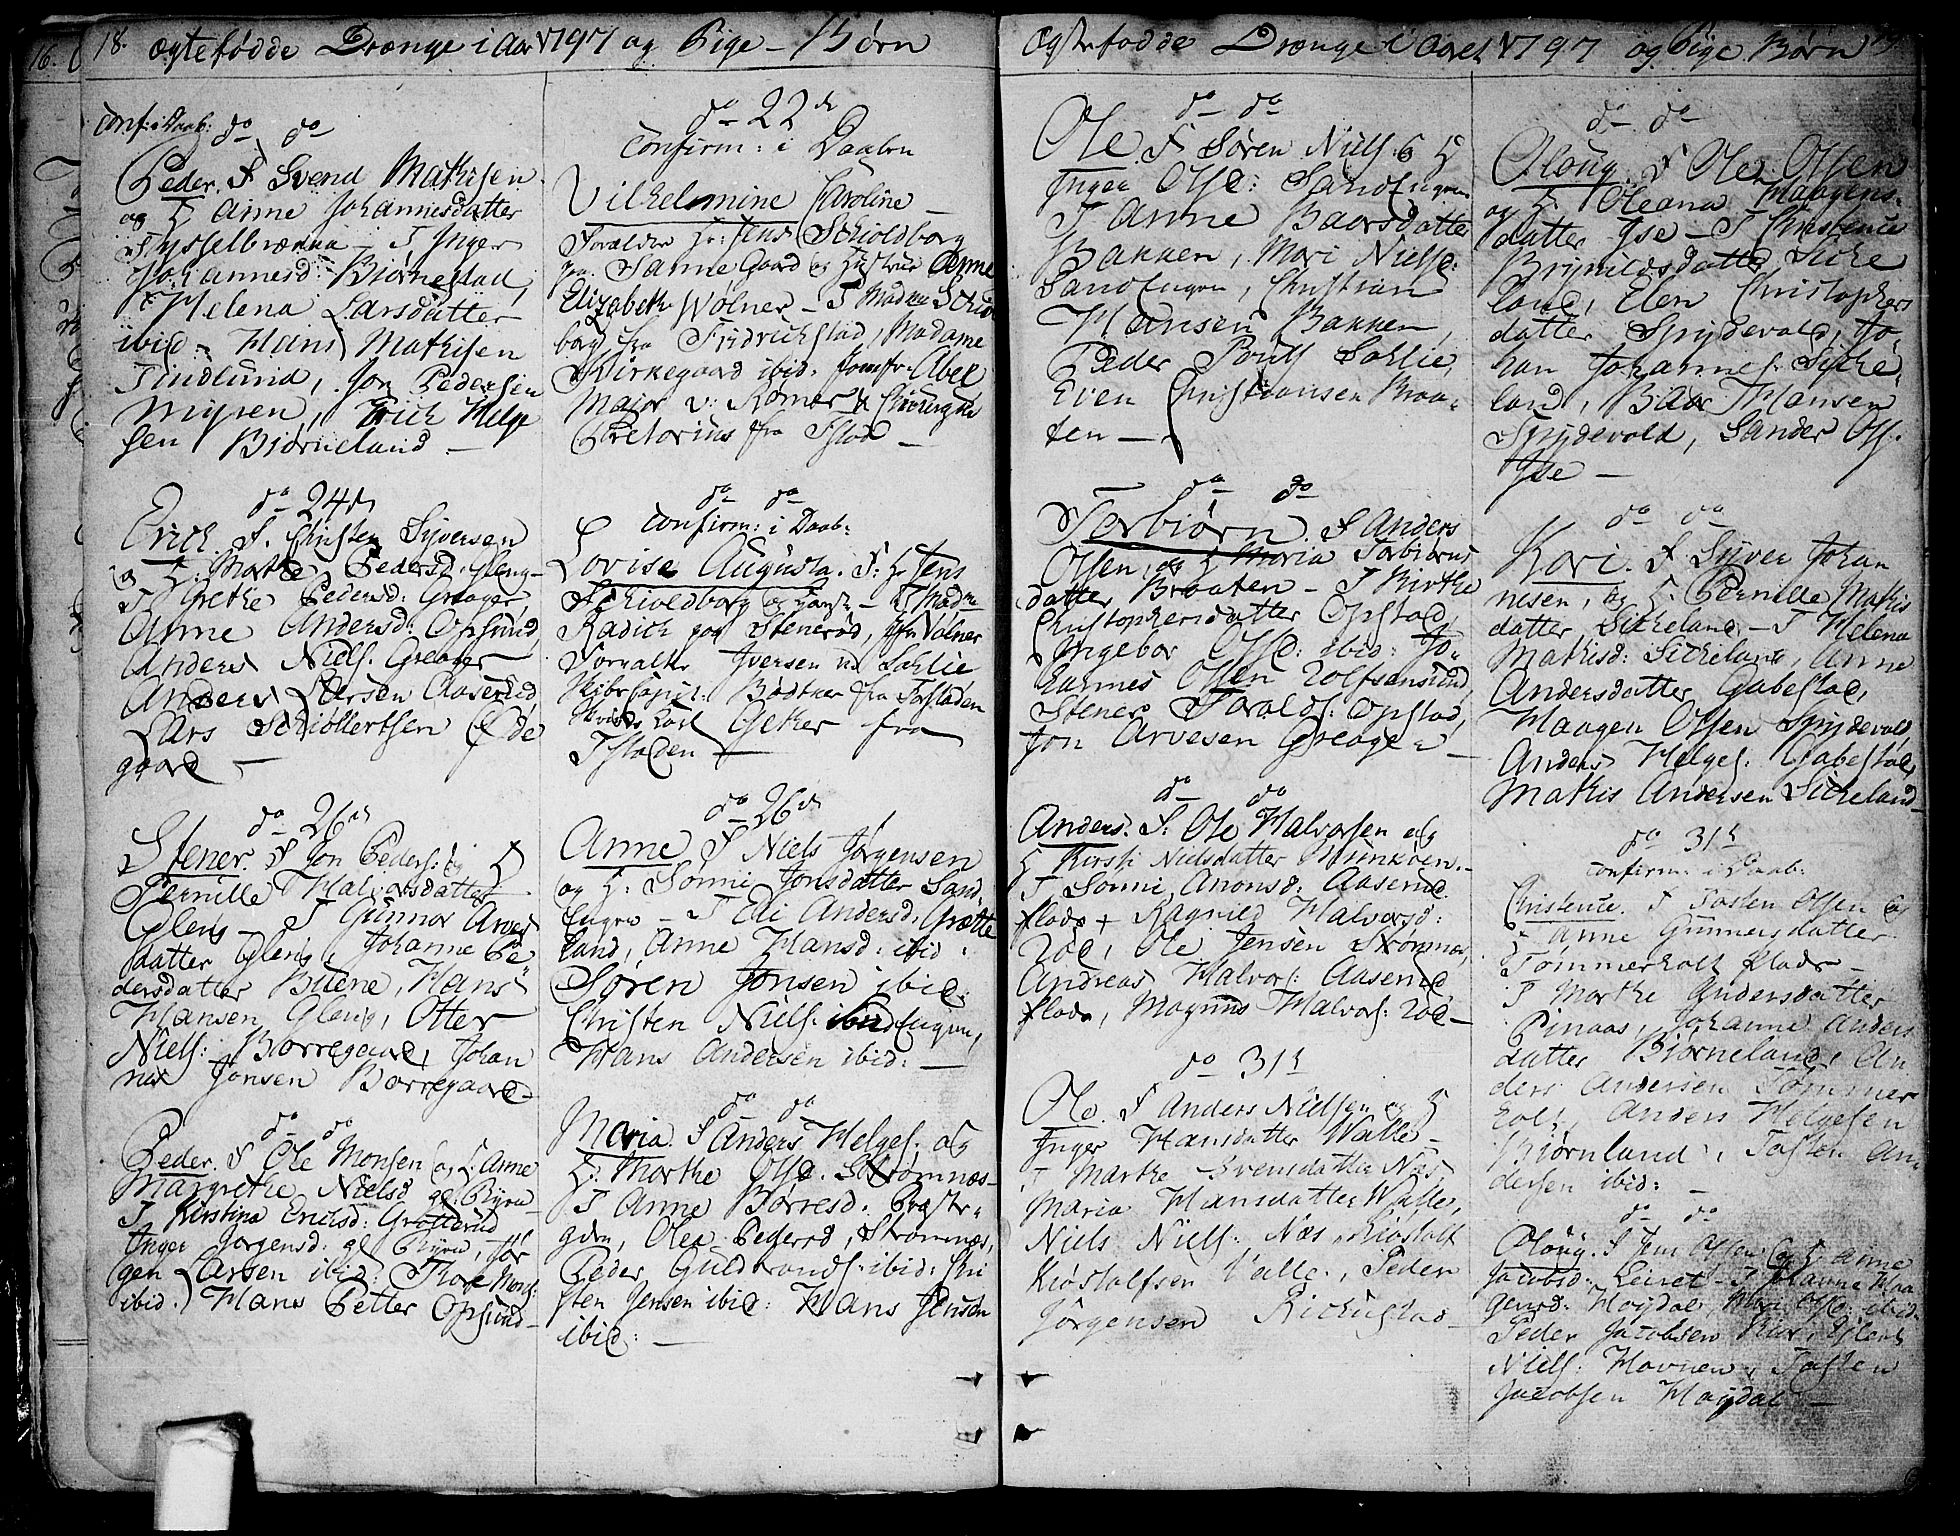 18. ægtefødde Drænge i Aar 1797 og Pige - Børn
Conf: i Daab:
do do
Peder. F Svend Mathisen
og H Anne Johannesdatter
Johannesd: Biørnestad,
Helena Larsdatter
ibid - Hans Mathisen
Tindlund, Jon Pedersen
Mysen, Erich Helge
sen Biørneland -
do 24de
Erich. F. Christen Syversen
og H: Marthe Pedersd. Gleng -
T Grethe Pedersd: Greager
Anne Andersd: Opsund,
Anders Niels: Greager
Anders Larsen Aaserud
Lars Schiøllertsen Øde
gaard -
do 26de
Stener. F Jon Peders: og H
Pernille Halvorsdatter
Gleng - T Gunnor Arves
datter Gleng, Johanne Pe
dersdatter Buene, Hans
Hansen Gleng, Otter
Niels: Borregaard, Johan
nes Jonsen Borregaard -
do do
Peder. F Ole Monsen og H. Anne
Margrethe Nielsd
T Kirstina Erichsd: Grøtterud
Inger Jørgensd: Jør
gen Larsen ibid: Thore Mons:
ibid. Hans Petter Opsund -
do 22de
Confirm: i Daaben
Vilhelmine Caroline -
Forældre Hr: Jens Schioldborg
paa Sannegaard og Hustrue Anne
Elizabeth Wølner - T Madme Schiold
borg fra Fridrichstad, Madame
Kirkegaard ibid: Jomfr: Abel
Major v: Rømer
Pretorius fra Fstad -
do do
Confirm: i Daab:
Lovise Augusta. F: Hr Jens
Schioldborg og Hustr - T Madme
Radich paa Stenerød, Jfr Wølner
Forvalter Iversen ved Sahlie
Skibs Capit: Bødtker fra Fstaden
Geker fra
Fstaden -
do 26de
Anne F Niels Jørgensen
og H: Sønni Jonsdatter Sand
Engen - T Edi Andersd: Grette
land, Anne Hansd: ibid.
Søren Jonsen ibid:
Christen Niels: Engen,
Hans Andersen ibid: -
do do
Maria. F Anders Helges: og
H: Marthe Olsd. Strømnæs -
T Anne Børresd:
Olea Pedersd, Strømnæs,
Peder Guldbrands: ibid: Chri
sten Jensen ibid: Hans Jensen
ibid: -
Ægtefødde Drænge i Aaret 1797 og Pige Børn 19.
do do
Ole F Søren Niels. og H
Inger Olsd: SandEngen
T Anne Baarsdatter
Bakken, Mari Nielsd:
SandEngen, Christian
Hansen Bakken,
Peder Pouls Sahlie,
Even Christiansen Braa-
ten -
do do
Torbiørn. F Anders
Olsen, og H Maria Torbiørns
datter Braaten - T Birthe
Christophersdatter Opstad,
Ingebor Olsd: ibid: Jo-
hannes Olsen Rolfsønsund,
Stener Taralds: Opstad,
Jon Arvesen Greager -
do do
Anders. F: Ole Halvorsen og
H Kirsti Nielsdatter
T Sønni Anonsd: Aaserud
plads + Ragnild Halvorsd:
Roe, Ole Jensen Strømnæs,
Andreas Halvors: Aaserud
plads, Magnus Halvors: Roe -
do 31te
Ole. F Anders Nielsen og H
Inger Hansdatter Walle -
T Marthe Svensdatter Næs,
Maria Hansdatter Walle,
Niels Niels: Næs, Kiøstolf
Kiøstolfsen Valle, Peder
Jørgensen
do do
Oloug. F Ole Olsen
og H. Oleana Maagens-
datter Yse - T Christence
Brynildsdatter Siche
land, Elen Christophers
datter Spydevold, Jo-
han Johannes: Siche-
land, Baar Hansen
Spydevold, Sander Ols.
Yse -
do do
Kari. F Syver Johan
nesen, og H. Pernille Mathis
datter Sicheland - T Helena
Mathisd: Sicheland, Anne
Andersdatter Gabestad,
Haagen Olsen Spydevold,
Anders Helges: Gabestad,
Mathis Andersen Sicheland -
do 31te
Confirm: i Daab:
Christence. F Tosten Olsen og
H Anne Gunnersdatter
Tømmerholt plads -
T Marthe Andersdatter
Pinaas, Johanne Anders
datter Biørneland, An
ders Andersen Tømmer
holt, Anders Helgesen
Biørnland, Tosten An-
dersen ibid: -
do do
Oloug. F Jens Olsen og H Anne
Jacobsd: Leiret - T Johanne Haa
gensd: Høydal, Mari Olsd: ibid.
Peder Jacobsen
Niels: Havnen, Tosten
Jacobsen Høydal -